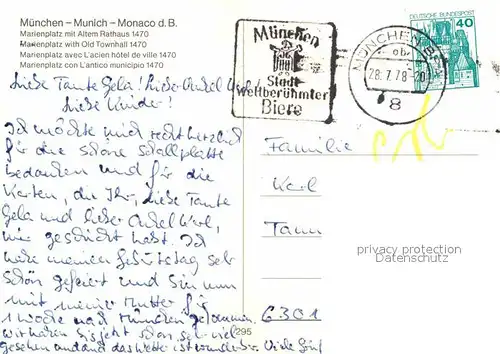 München – Munich – Monaco d. B.
Marienplatz mit Altem Rathaus 1470
Marienplatz with Old Townhall 1470
Marienplatz avec L'acien hôtel de ville 1470
Marienplatz con L'antico municipio 1470
Liebe Tante Gela! Lieber Onkel
Liebe Kinder!
Ich möchte mich recht herzlich
für die schöne Schallplatte
bedanken und für die
Karten, die Ihr, liebe Tante
Gela und lieber Onkel
mir geschickt habt. Ich
habe meinen Geburtstag sehr
schön gefeiert und bin nun
mit meiner Mutter für
1 Woche nach München gefahren.
wir haben bis jetzt schon sehr viel
gesehen und das Wetter ist wunderbar. Viele
München
Stadt
weltberühmter
Biere
MÜNCHEN
28.7.78-20
8
DEUTSCHE BUNDESPOST
40
Familie
Karl
Tann
6301
295
privacy protection
Datenschutz